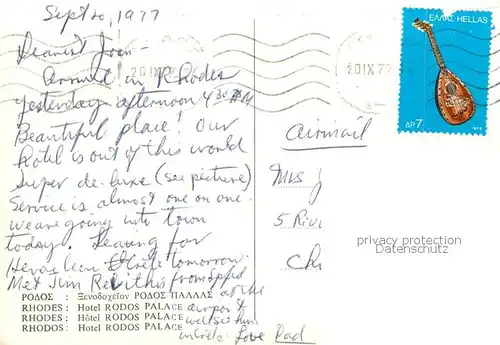 Sept 20, 1977
Dearest Joan —
Arrived in Rhodes
yesterday afternoon 4 30 PM
Beautiful place! Our
Hotel is out of this world
super de-luxe (see picture)
Service is almost one on one.
we are going into town
today. Leaving for
Heraclean Crete tomorrow.
Met Jim this from Spfd
at the
airport &
will see him
in Crete. Love Dad
ΡΟΔΟΣ : Ξενοδοχεῖον ΡΟΔΟΣ ΠΑΛΛΑΣ
RHODES : Hotel RODOS PALACE
RHODES : Hôtel RODOS PALACE
RHODOS : Hotel RODOS PALACE
20 IX 77
20 IX 77
ΕΛΛΑΣ-HELLAS
ΔΡ 7
Airmail
Mrs J
5 Rive
Ch
privacy protection
Datenschutz